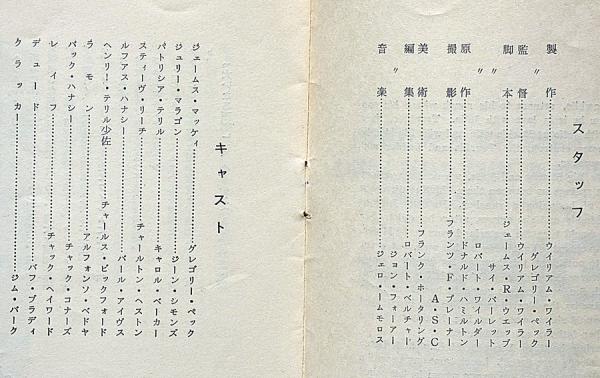 スタッフ
製作……ウイリアム・ワイラー
〃 グレゴリー・ペック
監督……ウイリアム・ワイラー
脚本……ジェームス・R・ウエッブ
〃 サイ・バーレット
〃 ロバート・ワイルダー
原作……ドナルド・ハミルトン
撮影……フランツ・F・プレーナー
A・S・C
美術……フランク・ホータリング
編集……ロバート・ベルチャー
〃 ジョン・フォーアー
音楽……ジェローム・モロス
キャスト
ジェームス・マッケイ……グレゴリー・ペック
ジュリー・マラゴン……ジーン・シモンズ
パトリシア・テリル……キャロル・ベーカー
スティーヴ・リーチ……チャールトン・ヘストン
ルファス・ハナシー……バール・アイヴス
ヘンリー・テリル少佐……チャールス・ビックフォード
ラモン……アルフォンソ・ベドヤ
バック・ハナシー……チャック・コナーズ
レイフ……チャック・ヘイワード
デュード……バフ・ブラディ
クラッカー……ジム・バーク